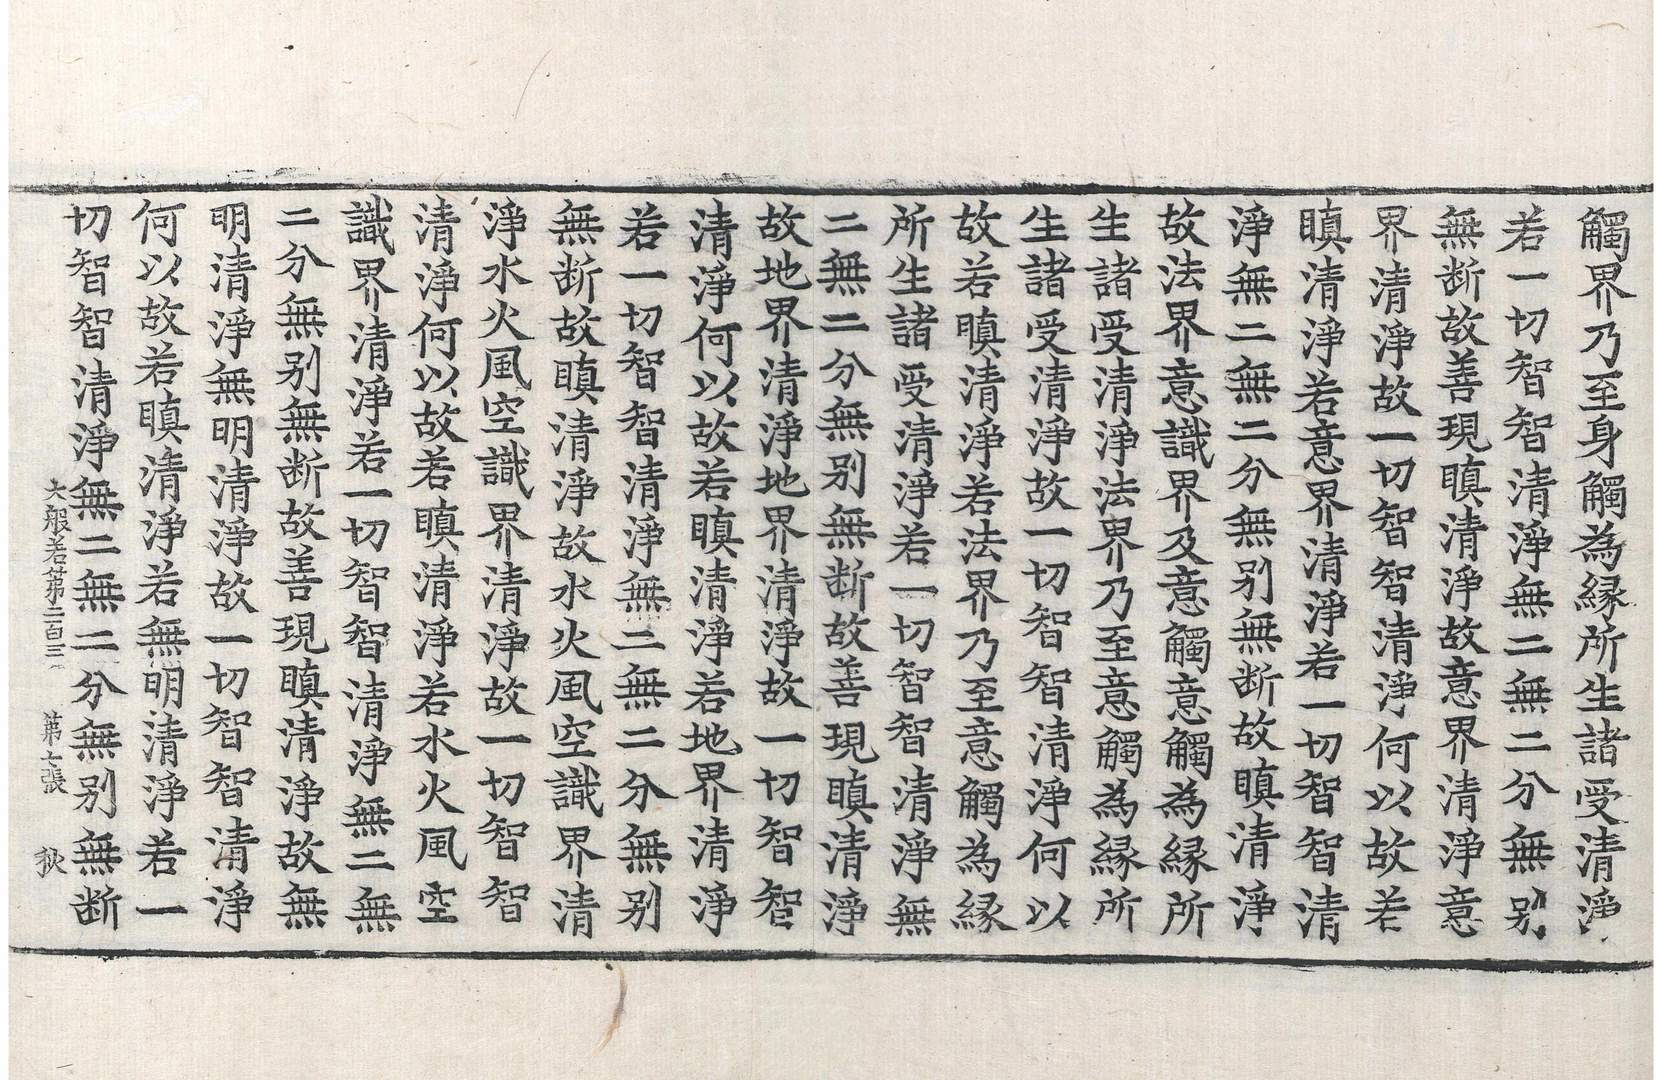 觸界乃至身觸為緣所生諸受清淨
若一切智智清淨無二無二分無別
無断故善現瞋清淨故意界清淨意
界清淨故一切智智清淨何以故若
瞋清淨若意界清淨若一切智智清
淨無二無二分無別無断故瞋清淨
故法界意識界及意觸意觸為緣所
生諸受清淨法界乃至意觸為緣所
生諸受清淨故一切智智清淨何以
故若瞋清淨若法界乃至意觸為緣
所生諸受清淨若一切智智清淨無
二無二分無別無断故善現瞋清淨
故地界清淨地界清淨故一切智智
清淨何以故若瞋清淨若地界清淨
若一切智智清淨無二無二分無別
無断故瞋清淨故水火風空識界清
淨水火風空識界清淨故一切智智
清淨何以故若瞋清淨若水火風空
識界清淨若一切智智清淨無二無
二分無別無断故善現瞋清淨故無
明清淨無明清淨故一切智智清淨
何以故若瞋清淨若無明清淨若一
切智智清淨無二無二分無別無断
大般若第二百三 第七張 狄